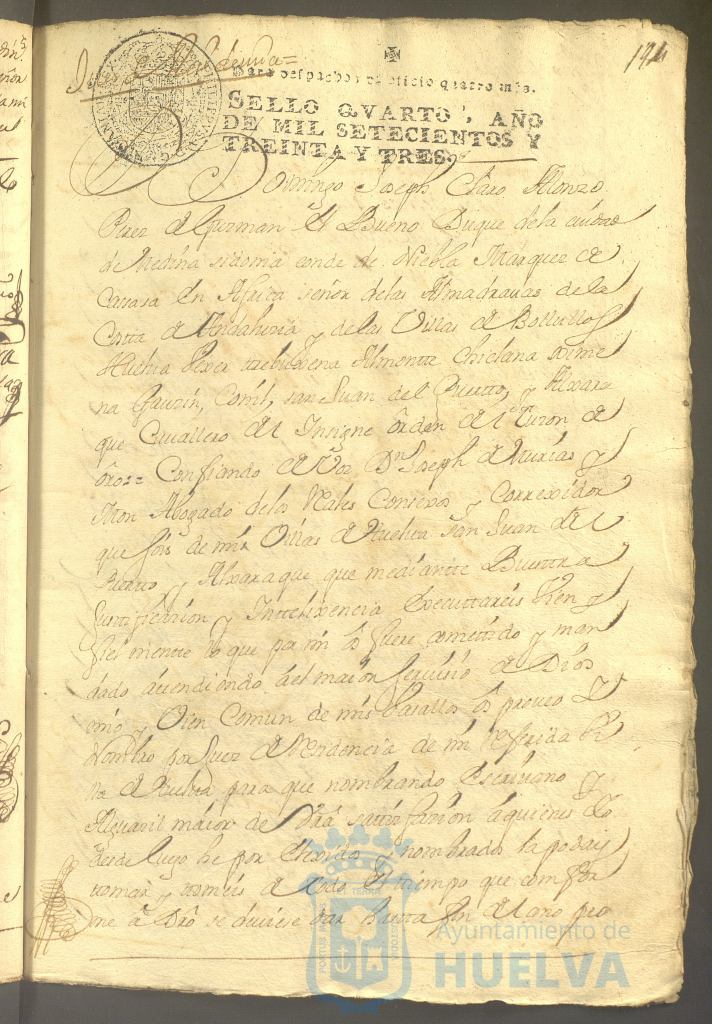 194
Para despachos de oficio quatro mrs.
SELLO QVARTO, AÑO
DE MIL SETECIENTOS Y
TREINTA Y TRES.
Domingo Joseph Claro Alonzo
Perez de Guzman el Bueno Duque de la ciudad
de Medina sidonia conde de Niebla Marquez de
Casasa en Africa señor de las Almadrauas de la
Costa de Andaluzia y de las Villas de Bollullos
Huelva trebuxena Almonte Chiclana Xime
na Gauzin, Conil, san Juan del Puerto, y Alxara
que Cauallero del Insigne Orden del tuson de
oro = Confiando de Vos Dn Joseph de Murias y
Mon Abogado de los Rales Consexos y Correxidor
que sois de mis Villas de Huelva san Juan del
Puerto y Alxaraque que mediante Buestra
Justificazion y Intelixencia executareis bien y
fielmente lo que por mi os fuere cometido y man
dado atendiendo al maior seruisio de Dios
mio y Vien Comun de mis basallos os proveo y
Nombro por Juez de Residencia de mi referida Vi
lla de Huelva para que nombrando escriuano y
Alguasil maior de Vra satisfazion a quienes
desde luego he por elexidos y nombrados la podais
tomar y tomeis de todo el tiempo que confor
me a Dro se deuiese dar hasta fin del año pro
Ayuntamiento de
HUELVA